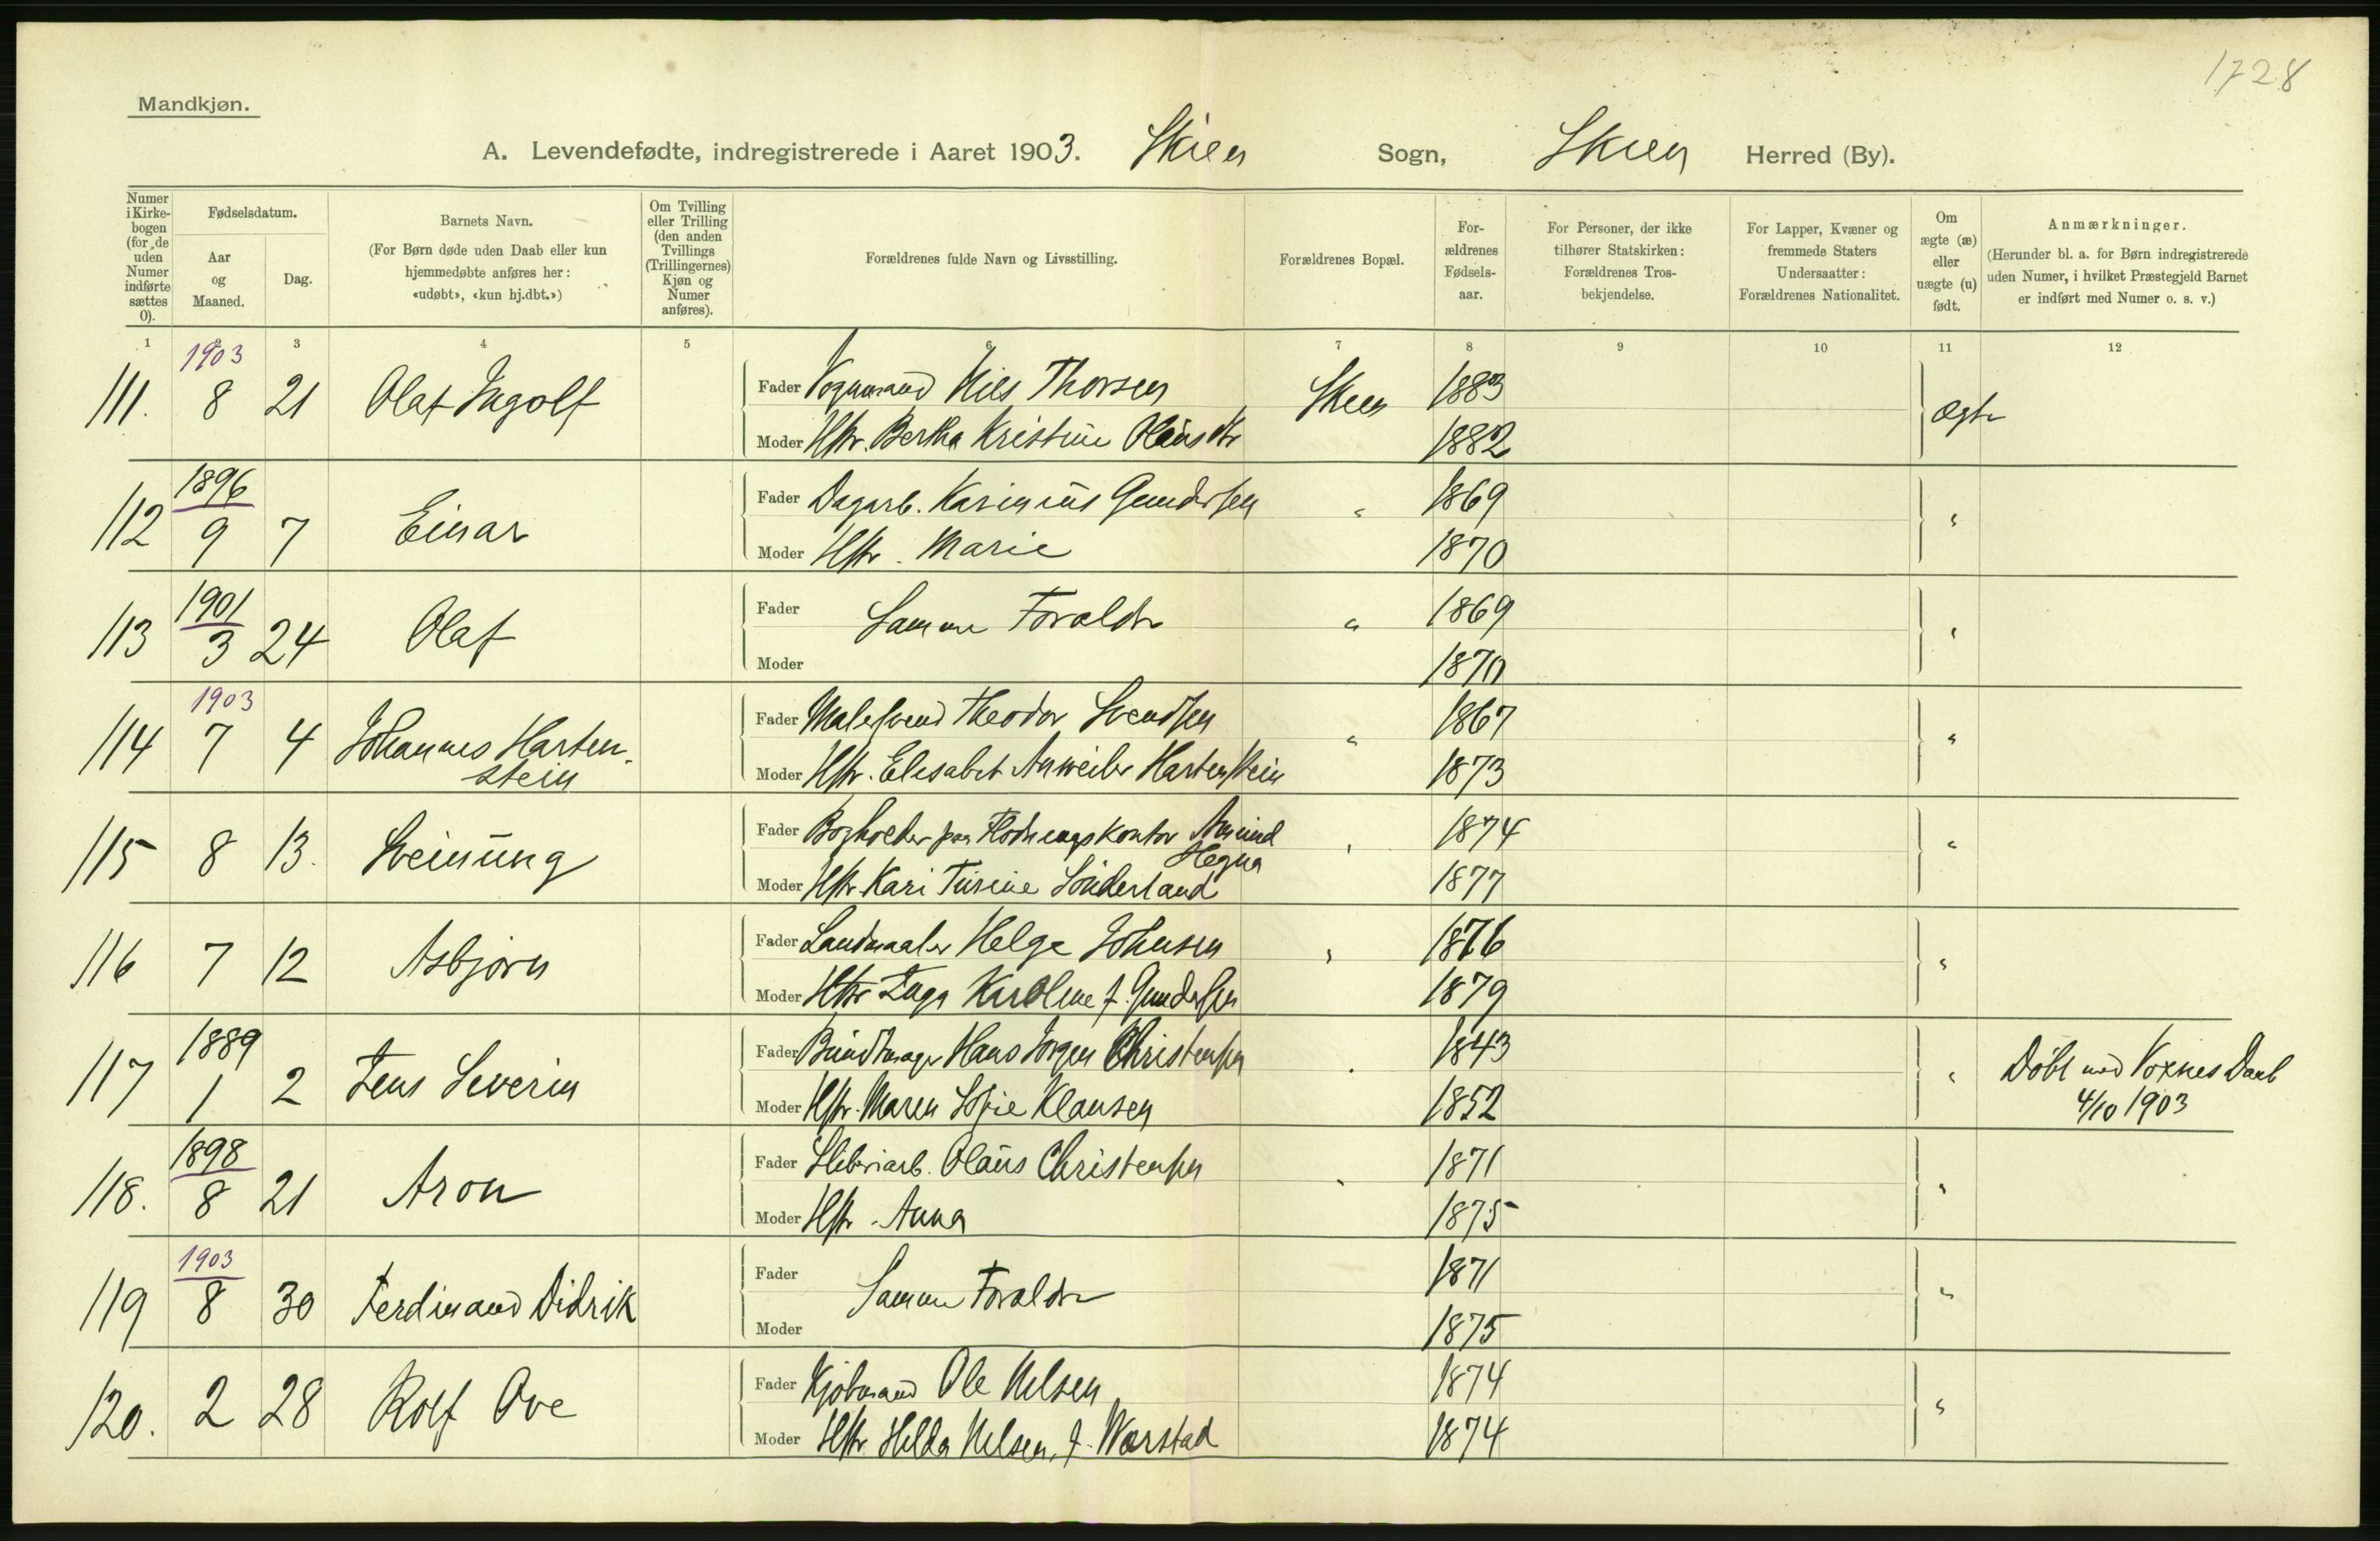 1728
Mandkjøn.
A. Levendefødte, indregistrerede i Aaret 1903. Skien Sogn, Skien Herred (By).
Numer i Kirkebogen (for de uden Numer indførte sættes 0).
Fødselsdatum.
Aar og Maaned.
Dag.
Barnets Navn.
(For Børn døde uden Daab eller kun hjemmedøbte anføres her: «udøbt», «kun hj.dbt.»)
Om Tvilling eller Trilling (den anden Tvillings (Trillingernes) Kjøn og Numer anføres).
Forældrenes fulde Navn og Livsstilling.
Forældrenes Bopæl.
Forældrenes Fødselsaar.
For Personer, der ikke tilhører Statskirken: Forældrenes Trosbekjendelse.
For Lapper, Kvæner og fremmede Staters Undersaatter: Forældrenes Nationalitet.
Om ægte (æ) eller uægte (u) født.
Anmærkninger.
(Herunder bl. a. for Børn indregistrerede uden Numer, i hvilket Præstegjeld Barnet er indført med Numer o. s. v.)
1 2 3 4 5 6 7 8 9 10 11 12
111. 1903 8 21 Olaf Ingolf Fader Vognmand Nils Thorsen Skien 1883 Ægte
Moder Hstr. Bertha Kristine Olausdtr 1882
112 1896 9 7 Einar Fader Dagarb. Karinius Gundersen " 1869 "
Moder Hstr. Marie 1870
113 1901 3 24 Olaf Fader Samme Forældr " 1869 "
Moder 1870
114 1903 7 4 Johannes Hartenstein Fader Malersvend Theodor Svendsen " 1867 "
Moder Hstr. Elisabet Anweiler Hartenstein 1873
115 8 13. Sveinung Fader Bogholder paa Flodningskontor Amund Hegna " 1874 "
Moder Hstr. Kari Turine Sønderland 1877
116 7 12 Asbjørn Fader Landmaaler Helge Johnsen " 1876 "
Moder Hstr Inga Karoline f. Gundersen 1879
117 1889 1 2 Jens Severin Fader Bundtmager Hans Jørgen Christensen " 1843 " Døbt med Voxnes Daab
Moder Hstr. Maren Sofie Klausen 1852 4/10 1903
118. 1898 8 21 Aron Fader Sliberiarb. Olaus Christensen " 1871 "
Moder Hstr. Anna 1875
119 1903 8 30 Ferdinand Didrik Fader Samme Forældr 1871 "
Moder 1875
120. 2 28 Rolf Ove Fader Kjøbmand Ole Nilsen 1874 "
Moder Hstr. Hilda Nilsen, f. Worstad 1874